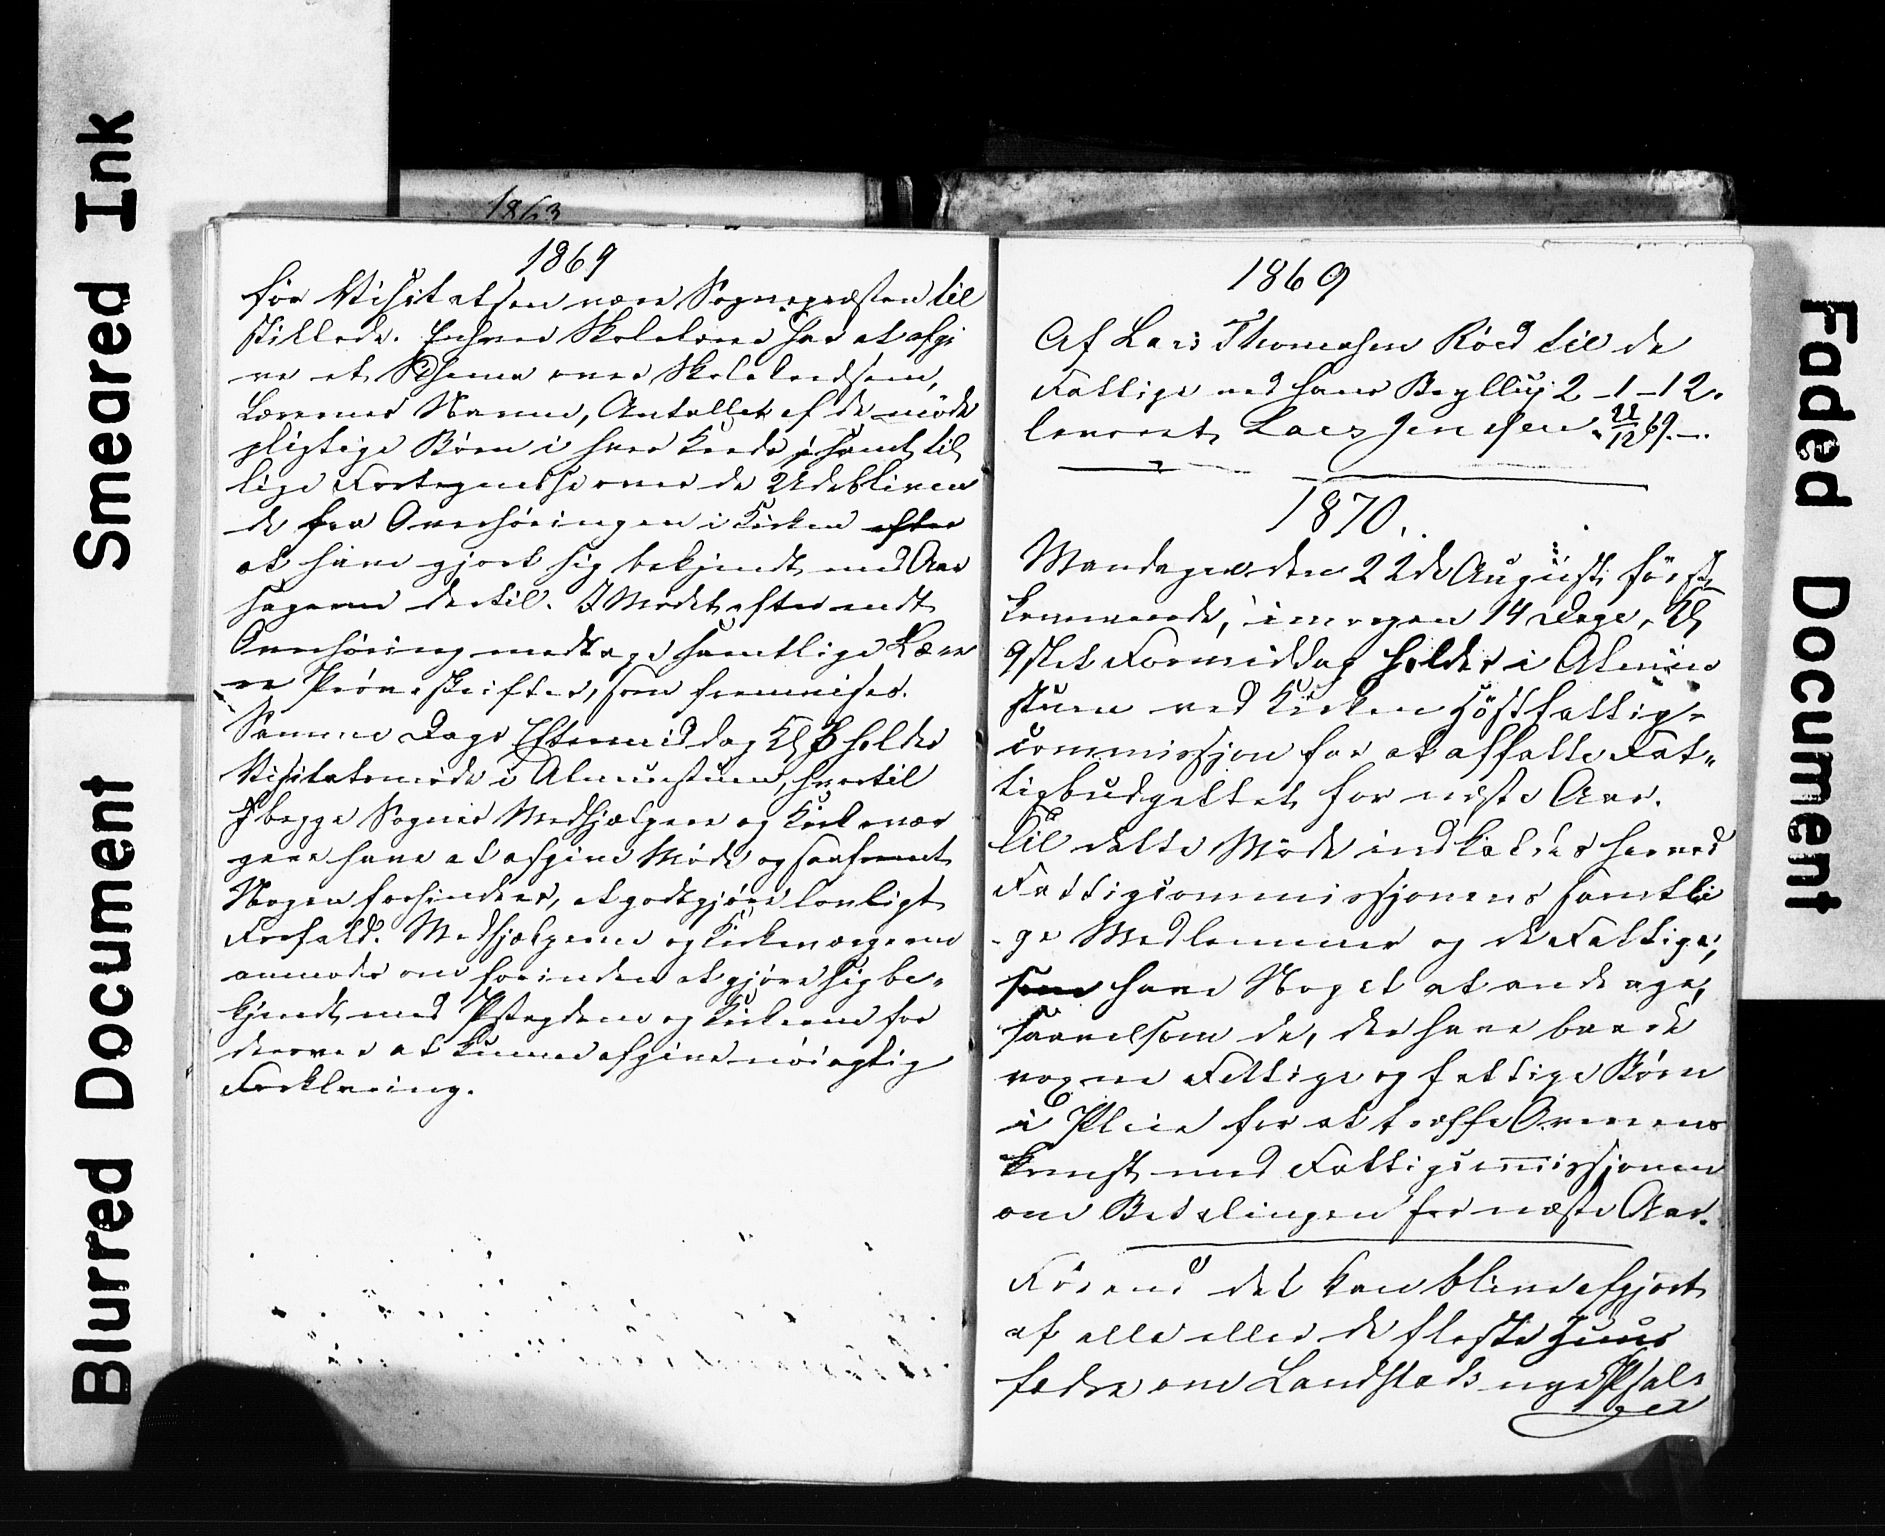 Smeared Ink
Blurred Document
Faded Document
1863
1869
før Visitatsen være Sognepræsten til
stillede. Enhver Skolelærer har at afgi
ve et Schema over Skolekredsen,
Lærernes Navne, Antallet af de møde
pligtige Børn i hver Kreds, samt til
lige Fortegnelse over de Udebliven
de fra Overhøringen i Kirken efter
at have gjort sig bekjendt med Aar
sagerne dertil. I Mødet efter endt
Overhøring medtage samtlige Lære
re Prøveskrifter, som fremvises.
Samme Dags Eftermiddag Kl holdes
Visitatsmøde i Almuestuen, hvortil
begge Sognes Medhjælpere og Kirkevær
gere have at afgive Møde og saafremt
Nogen forhindres, at godtgjøre lovligt
Forfald. Medhjælperne og Kirkeværgerne
anmodes om forinden at gjøre sig be-
kjendt med Præstegaardene og Kirkerne for
derover at kunne afgive nøiagtig
Forklaring.
1869
Af Lars Thomesen Røed til de
Fattige ved hans Bryllup 2-1-12.
leveret Lars Jensen 22/12 69.
1870.
Mandagen den 22de August først-
kommende, imorgen 14 Dage, Kl
9slet Formiddag holdes i Almue
stuen ved Kirken Høstfattig-
commissjon for at affatte Fat-
tigbudgettet for næste Aar.
Til dette Møde indkaldes herved
Fattigcommissjonens samtli
ge Medlemmer og de Fattige,
som have Noget at andrage,
saavelsom de, der have baade
voxne Fattige og fattige Børn
i Pleie for at træffe Overens
komst med Fattigcommissjonen
om Betalingen for næste Aar.
Førend det kan blive afgjort
af alle eller de fleste Huus
fædre om Landstads nye Psal-